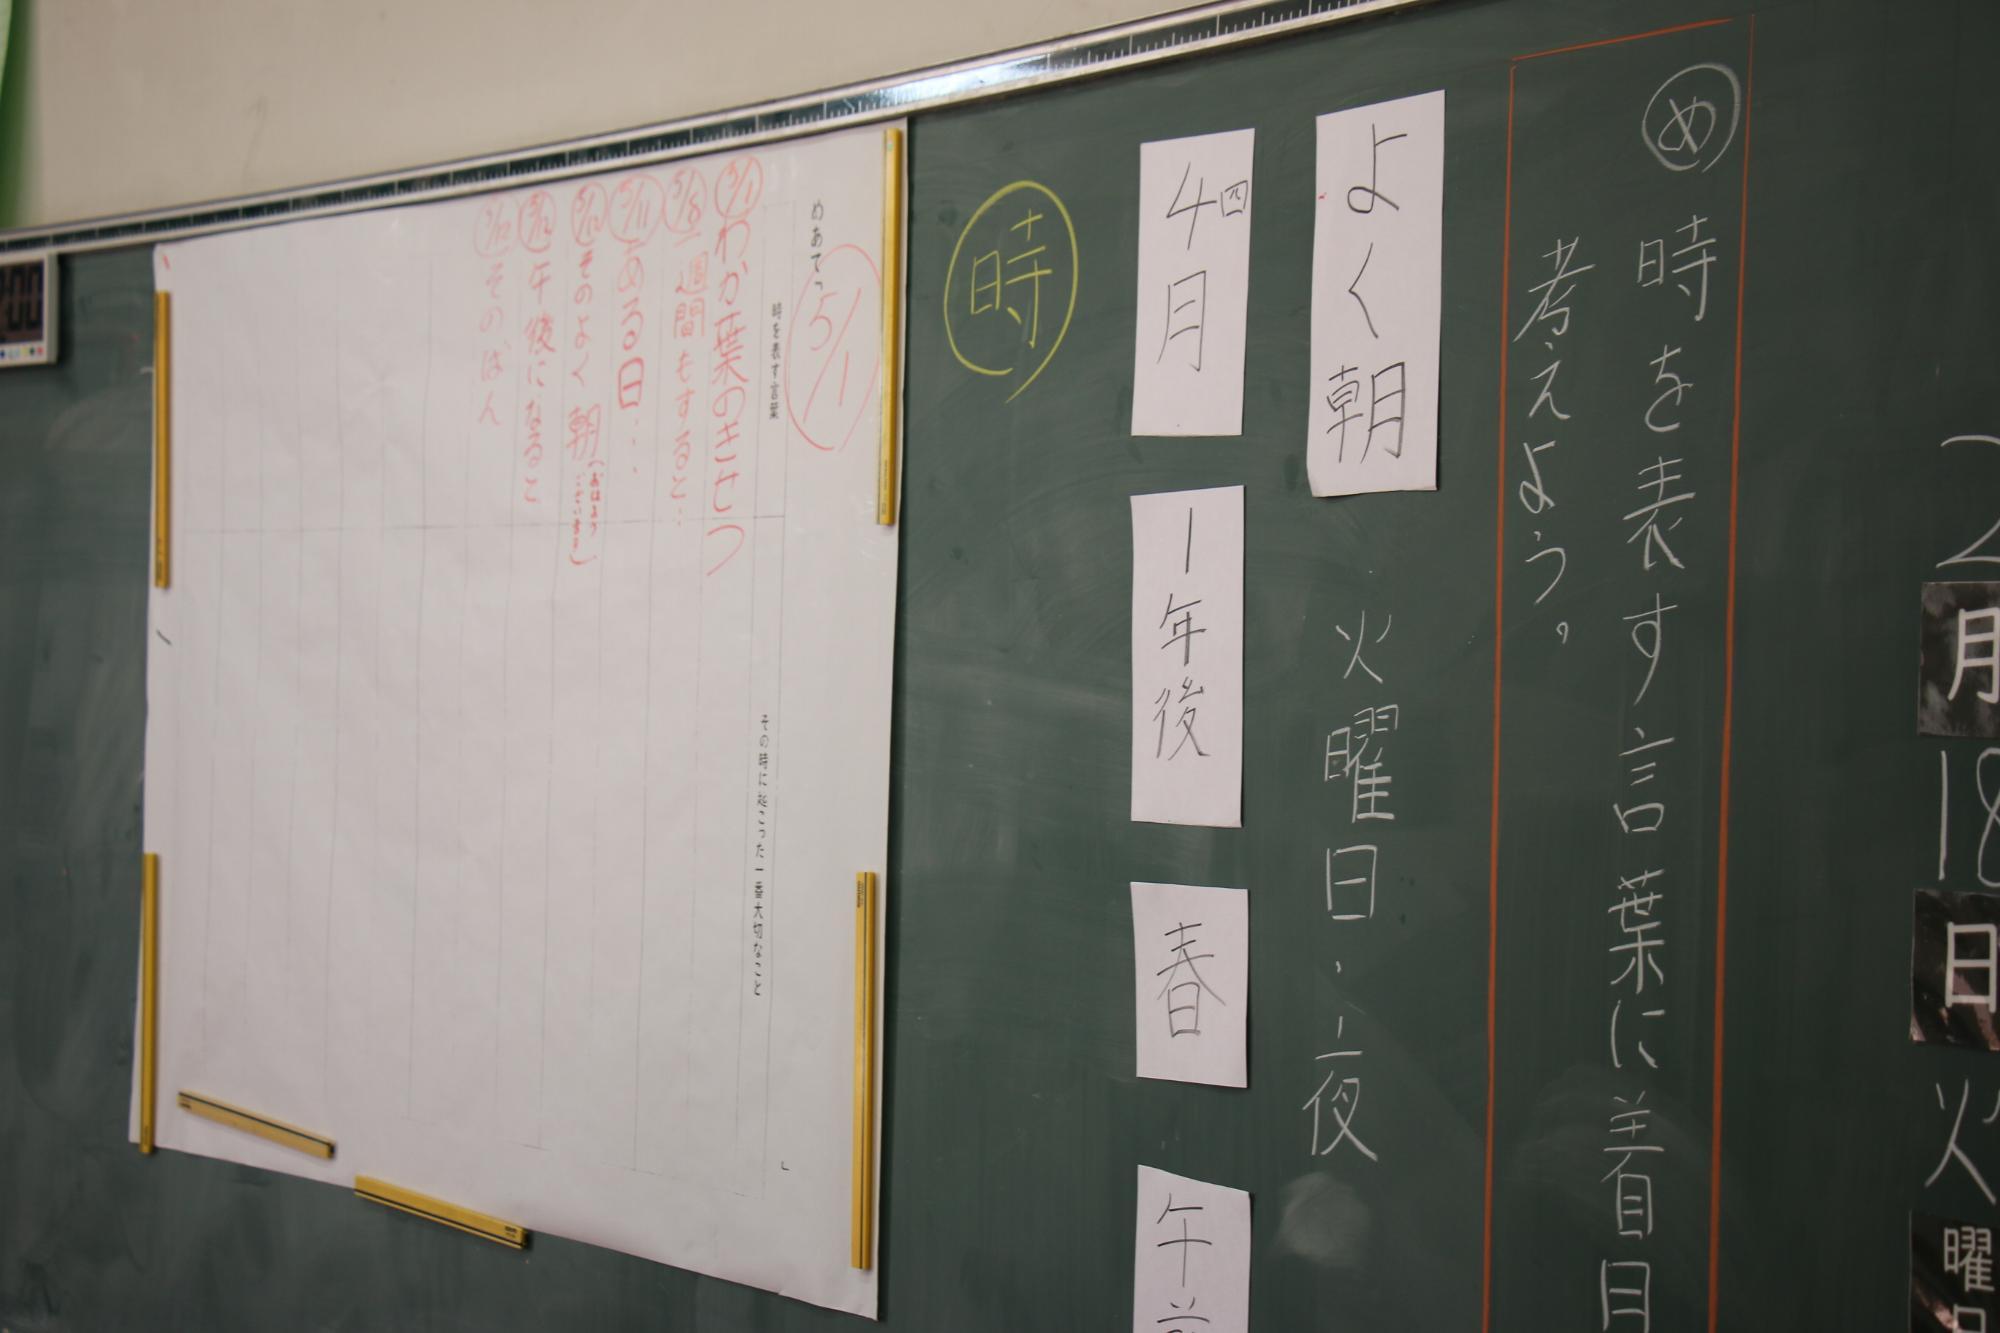 2月18日火曜
め 時を表す言葉に着目
考えよう。
よく朝
火曜日.
夜
4月
四
1年後
春
午前
時
めあて「
5/1
時を表す言葉
その時に起こった一番大切なこと
」
5/1 わか葉のきせつ
5/8 一週間もすると‥
5/11 ある日‥・
5/12 そのよく朝
(おはようございます)
5/12 午後になると
5/12 そのばん
00